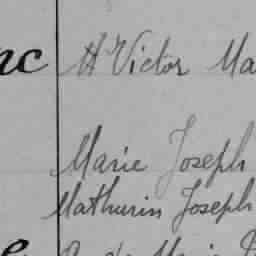 nc H Victor Ma
Marie Joseph
Mathurin Joseph